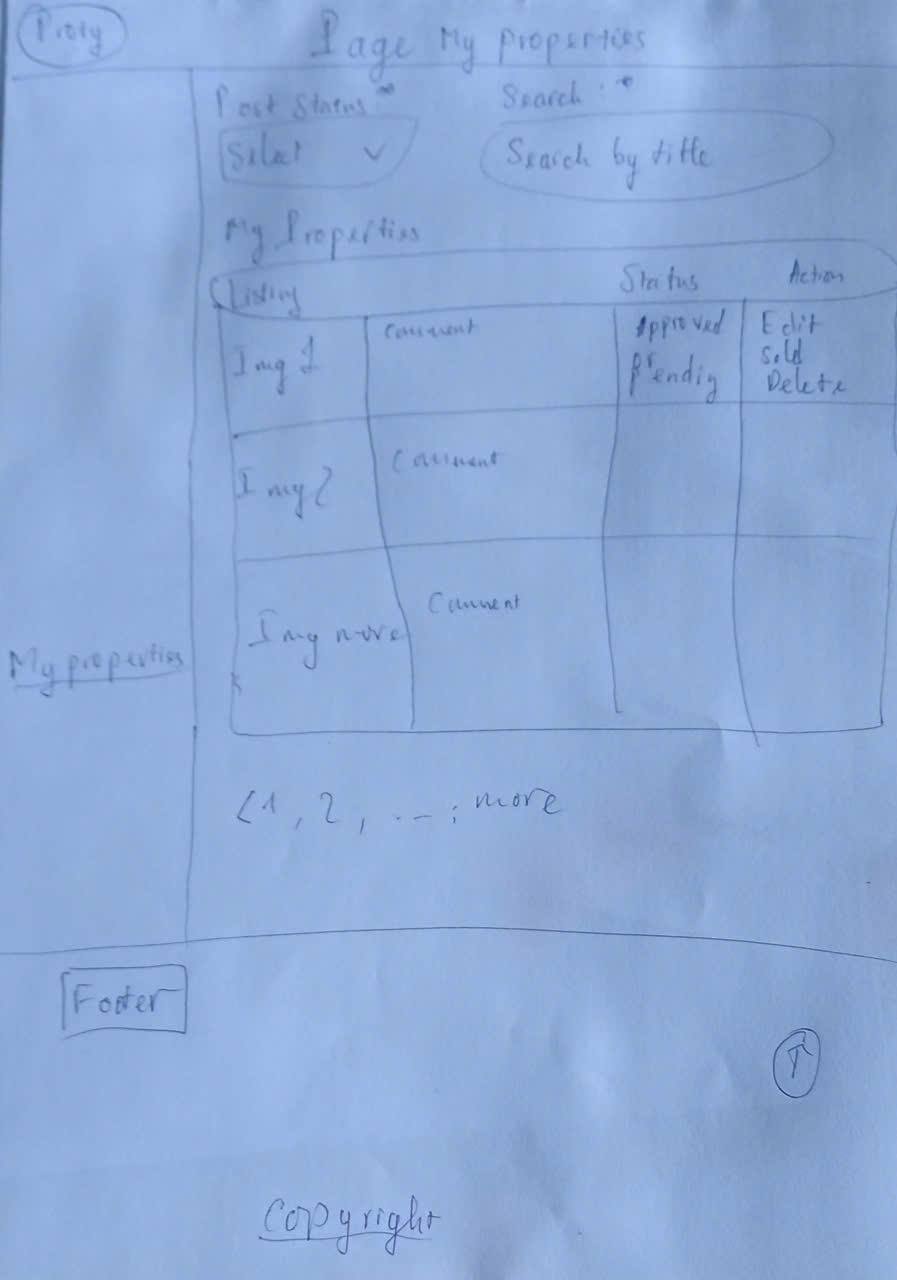 Proty
Page My properties
Post Status
Search :
Select
Search by title
My Properties
Listing Status Action
Img 1 Comment Approved Edit
Pending Sold
Delete
Img 2 Comment
Img more Comment
My properties
<1, 2, ... ; more
Footer
Copyright